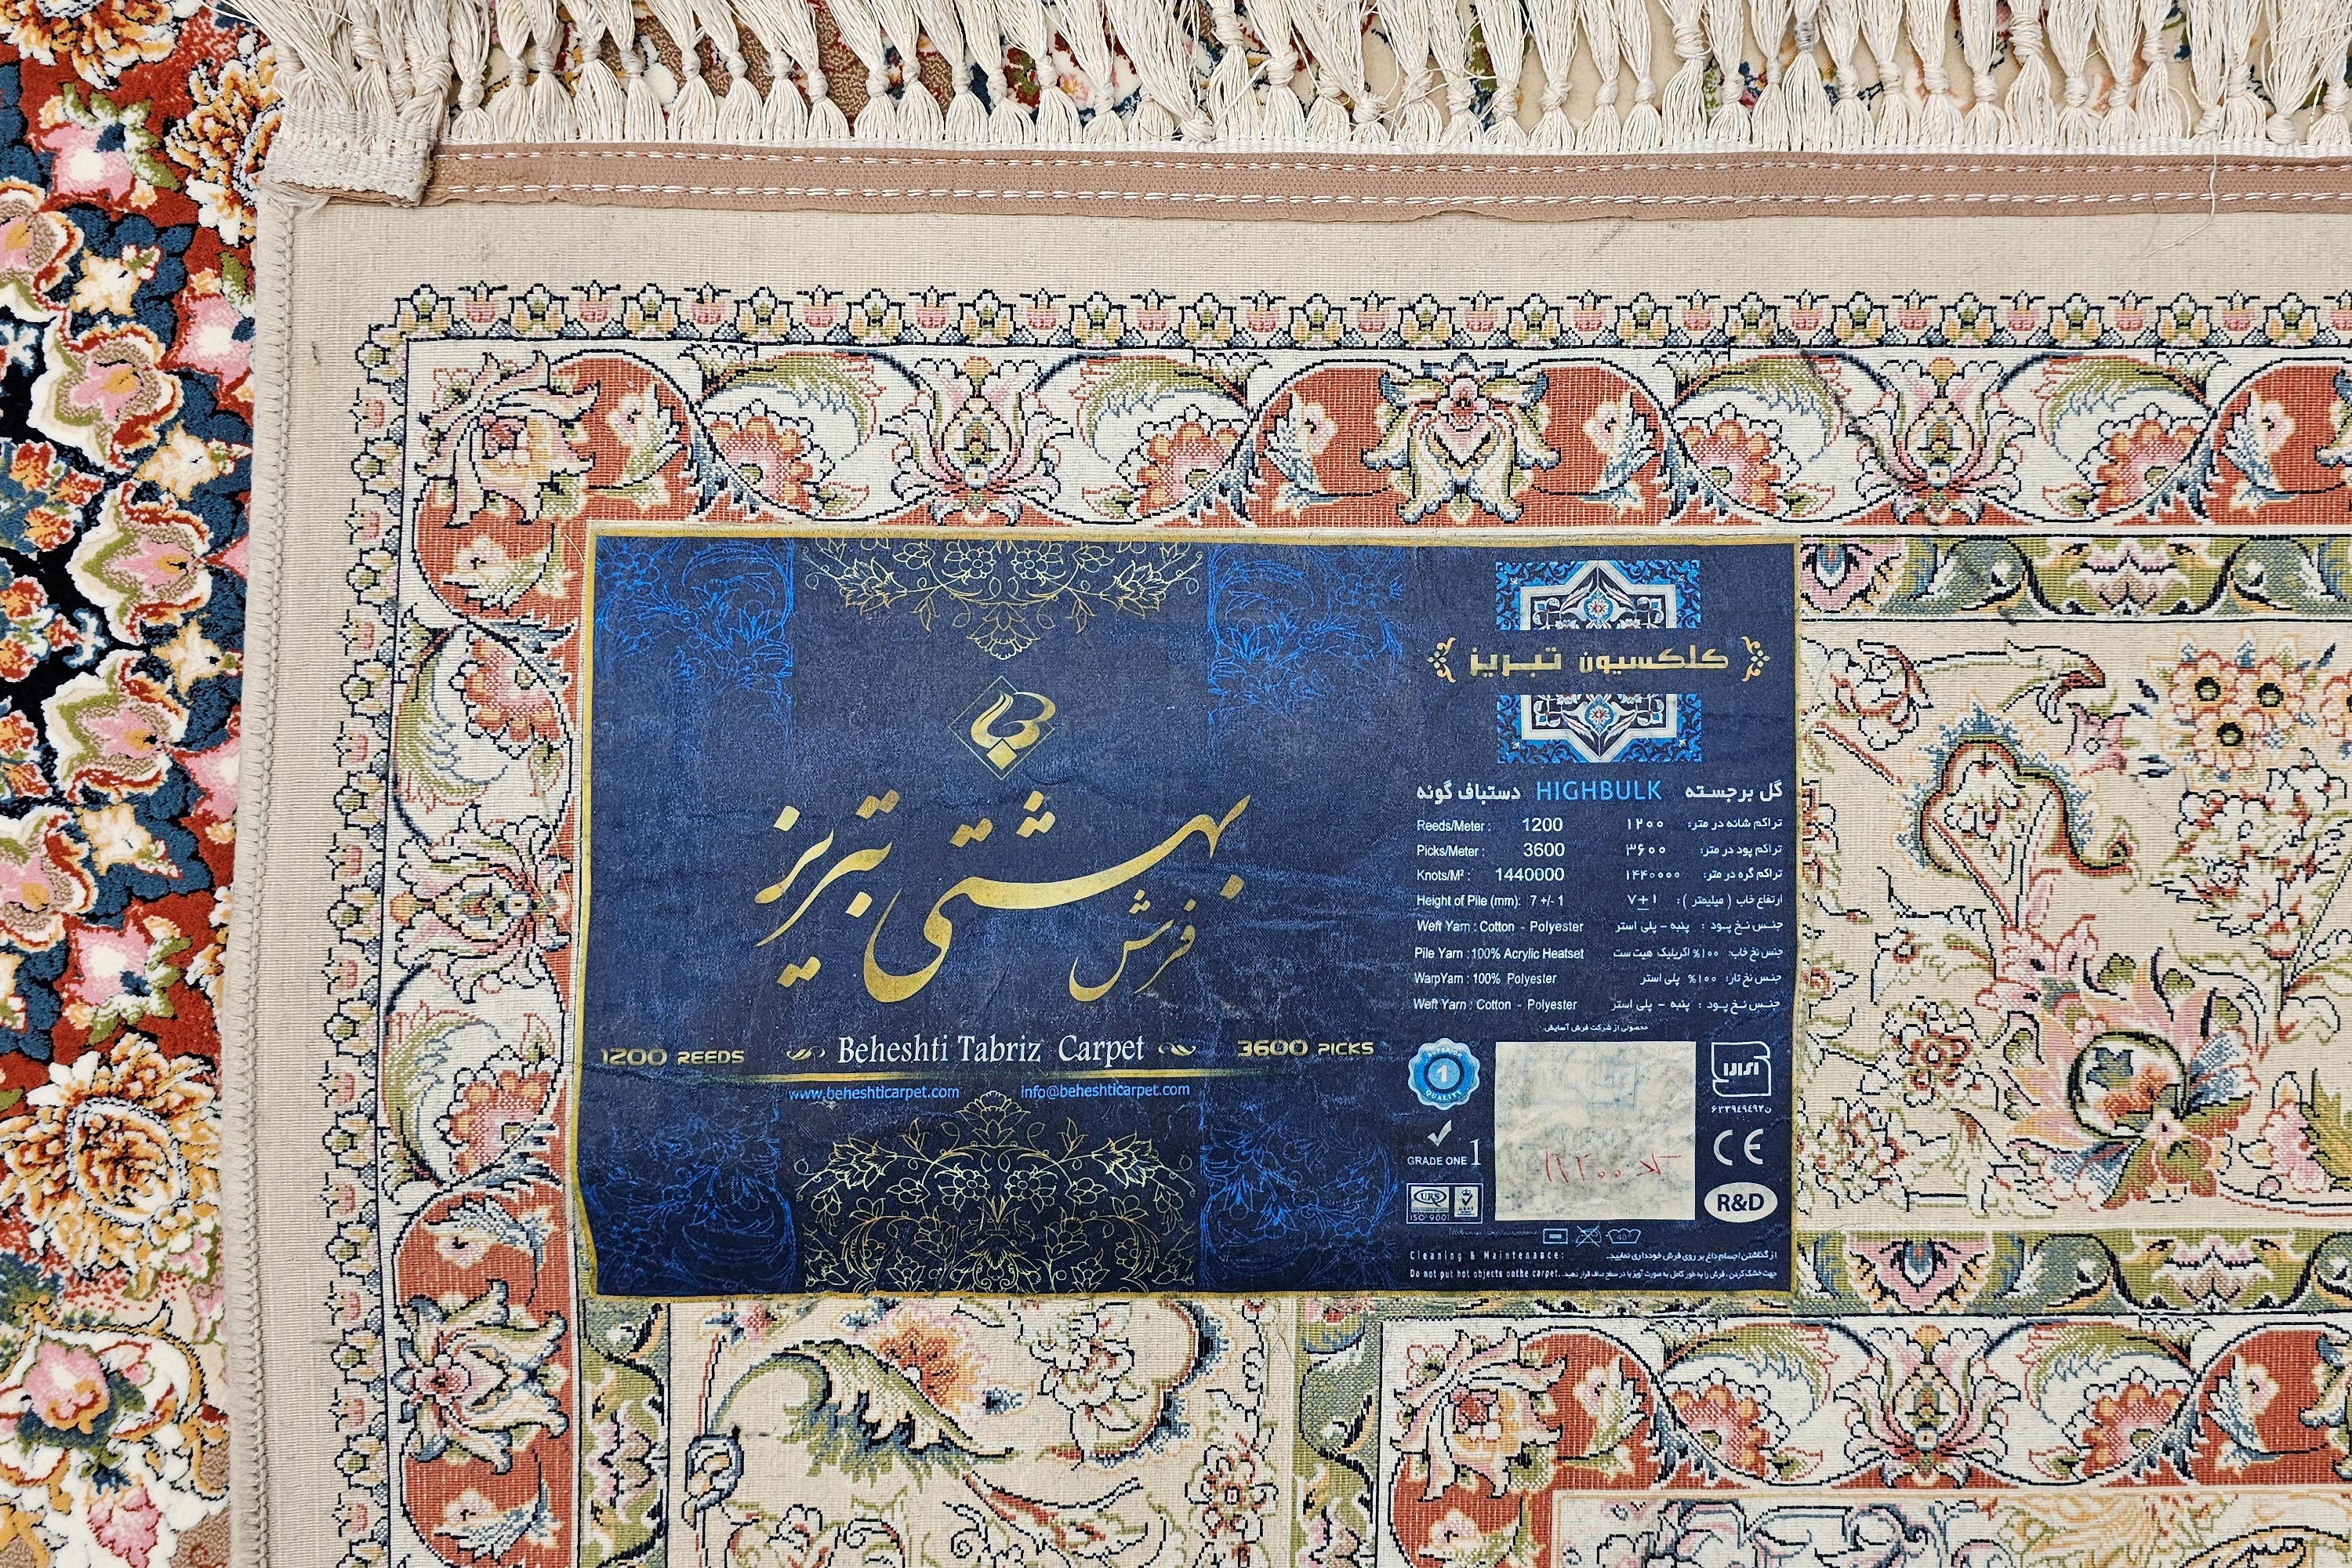 بهشتی تبریز
فرش
1200 REEDS
Beheshti Tabriz Carpet
3600 PICKS
www.beheshticarpet.com
info@beheshticarpet.com
کلکسیون تبریز
گل برجسته HIGHBULK دستباف گونه
Reeds/Meter : 1200 ۱۲۰۰ تراکم شانه در متر:
Picks/Meter : 3600 ۳۶۰۰ تراکم پود در متر:
Knots/M² : 1440000 ۱۴۴۰۰۰۰ تراکم گره در متر:
Height of Pile (mm): 7 +/- 1 ۷±۱ ارتفاع خاب ( میلیمتر ) :
Weft Yarn : Cotton - Polyester جنس نخ پود : پنبه - پلی استر
Pile Yarn : 100% Acrylic Heatset جنس نخ خاب: ۱۰۰% اکریلیک هیت ست
WarpYarn : 100% Polyester جنس نخ تار: ۱۰۰% پلی استر
Weft Yarn : Cotton - Polyester جنس نخ پود : پنبه - پلی استر
محصولی از شرکت فرش آسایش
1
QUALITY
GRADE ONE 1
URS
ISO 9001
CE
R&D
40°
Cleaning & Maintenance:
از گذاشتن اجسام داغ بر روی فرش خودداری نمایید.
Do not put hot objects onthe carpet.
جهت خشک کردن، فرش را به طور کامل به صورت آویز یا در سطح صاف قرار دهید.